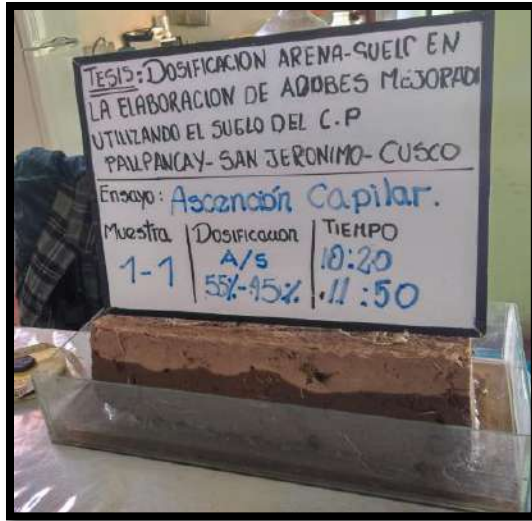 TESIS: DOSIFICACION ARENA-SUELO EN
LA ELABORACION DE ADOBES MEJORAD
UTILIZANDO EL SUELO DEL C.P
PAILPANCAY- SAN JERONIMO- CUSCO
Ensayo: Ascención Capilar.
Muestra Dosificacion TIEMPO
1-1 A/S 10:20
55%-45% 11:50